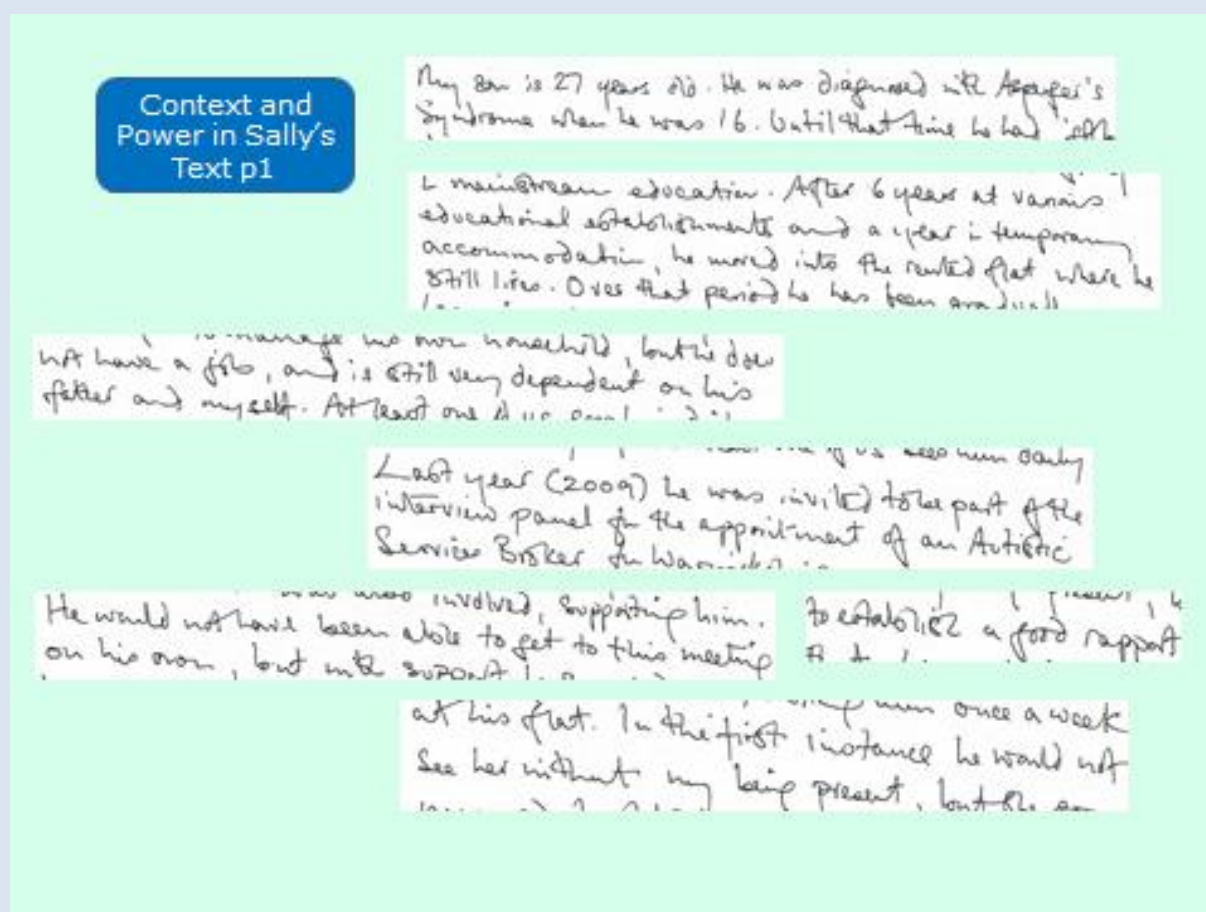 Context and
Power in Sally's
Text p1
My son is 27 years old. He was diagnosed with Asperger's
Syndrome when he was 16. Until that time he had
mainstream education. After 6 years at various
educational establishments and a year in temporary
accommodation, he moved into the rented flat where he
still lives. Over that period he has been gradually
to manage his own household, but he does
not have a job, and is still very dependent on his
father and myself. At least one of us
of us sees him daily
Last year (2009) he was invited to be part of the
interview panel for the appointment of an Autistic
Services Broker for
was also involved, supporting him.
He would not have been able to get to this meeting
on his own, but with support
present,
to establish a good rapport
him once a week
at his flat. In the first instance he would not
see her without my being present, but she